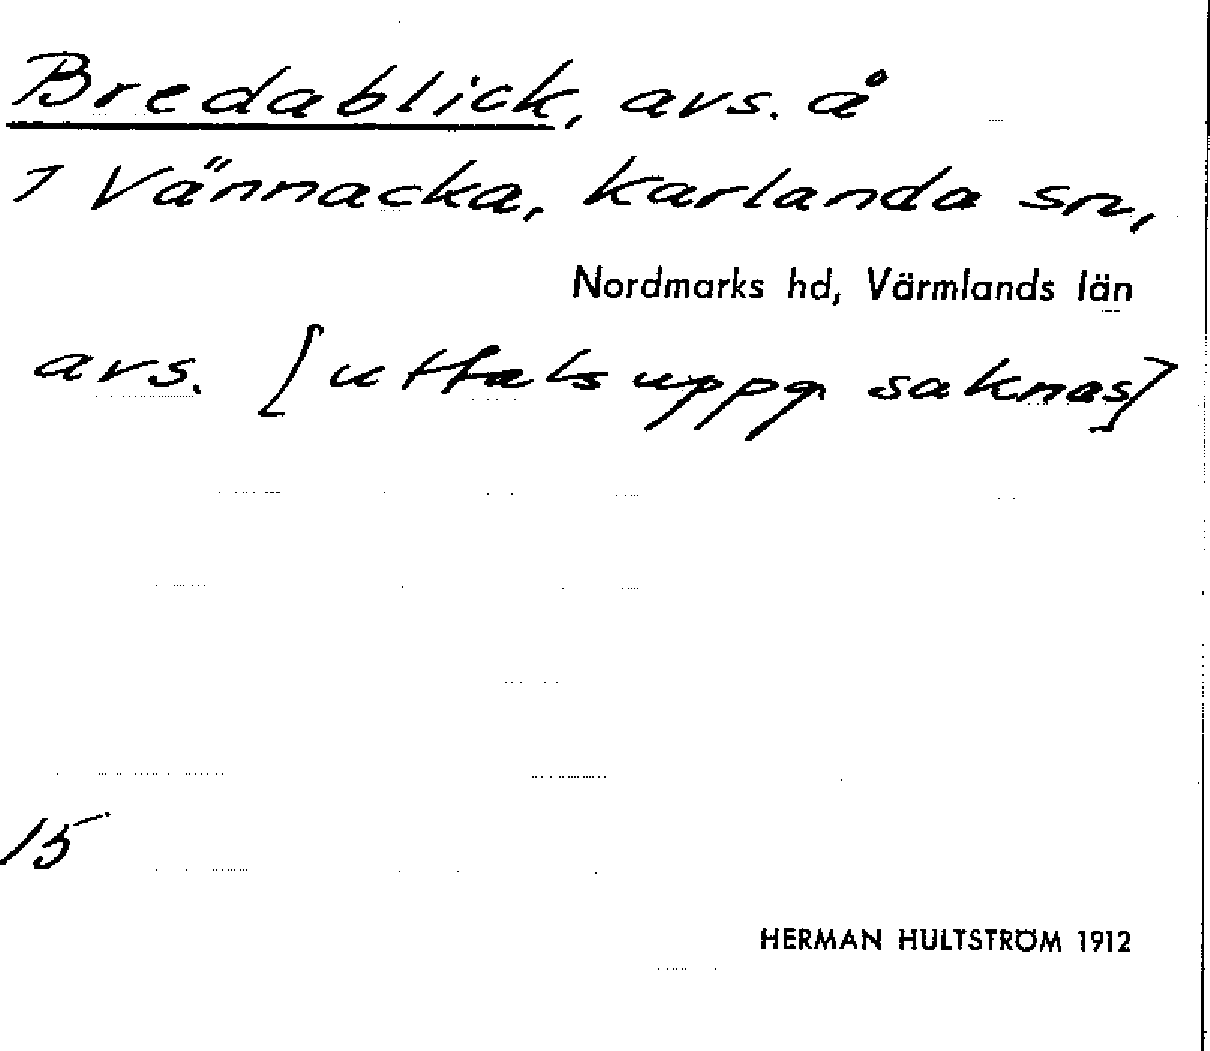 Bredablick, avs. å
1 Vännacka, Karlanda sn,
Nordmarks hd, Värmlands län
avs. [uttalsuppg. saknas]
15
HERMAN HULTSTRÖM 1912